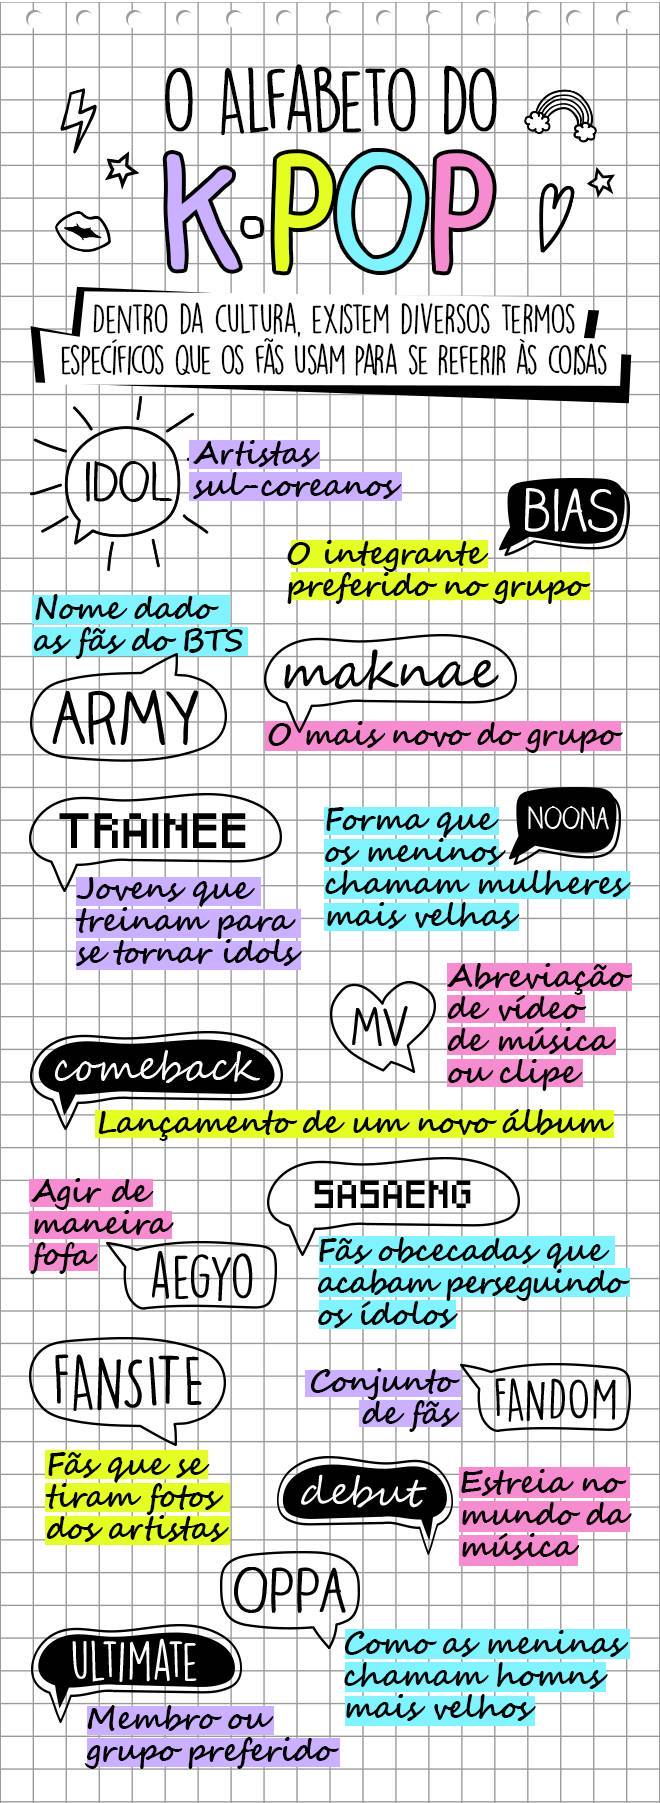 O ALFABETO DO
K-POP
DENTRO DA CULTURA, EXISTEM DIVERSOS TERMOS
ESPECÍFICOS QUE OS FÃS USAM PARA SE REFERIR ÀS COISAS
IDOL
Artistas
sul-coreanos
BIAS
O integrante
preferido no grupo
Nome dado
as fãs do BTS
ARMY
maknae
O mais novo do grupo
TRAINEE
Jovens que
treinam para
se tornar idols
NOONA
Forma que
os meninos
chamam mulheres
mais velhas
MV
Abreviação
de vídeo
de música
ou clipe
comeback
Lançamento de um novo álbum
Agir de
maneira
fofa
AEGYO
SASAENG
Fãs obcecadas que
acabam perseguindo
os ídolos
FANSITE
Fãs que se
tiram fotos
dos artistas
Conjunto
de fãs
FANDOM
debut
Estreia no
mundo da
música
OPPA
Como as meninas
chamam homns
mais velhos
ULTIMATE
Membro ou
grupo preferido